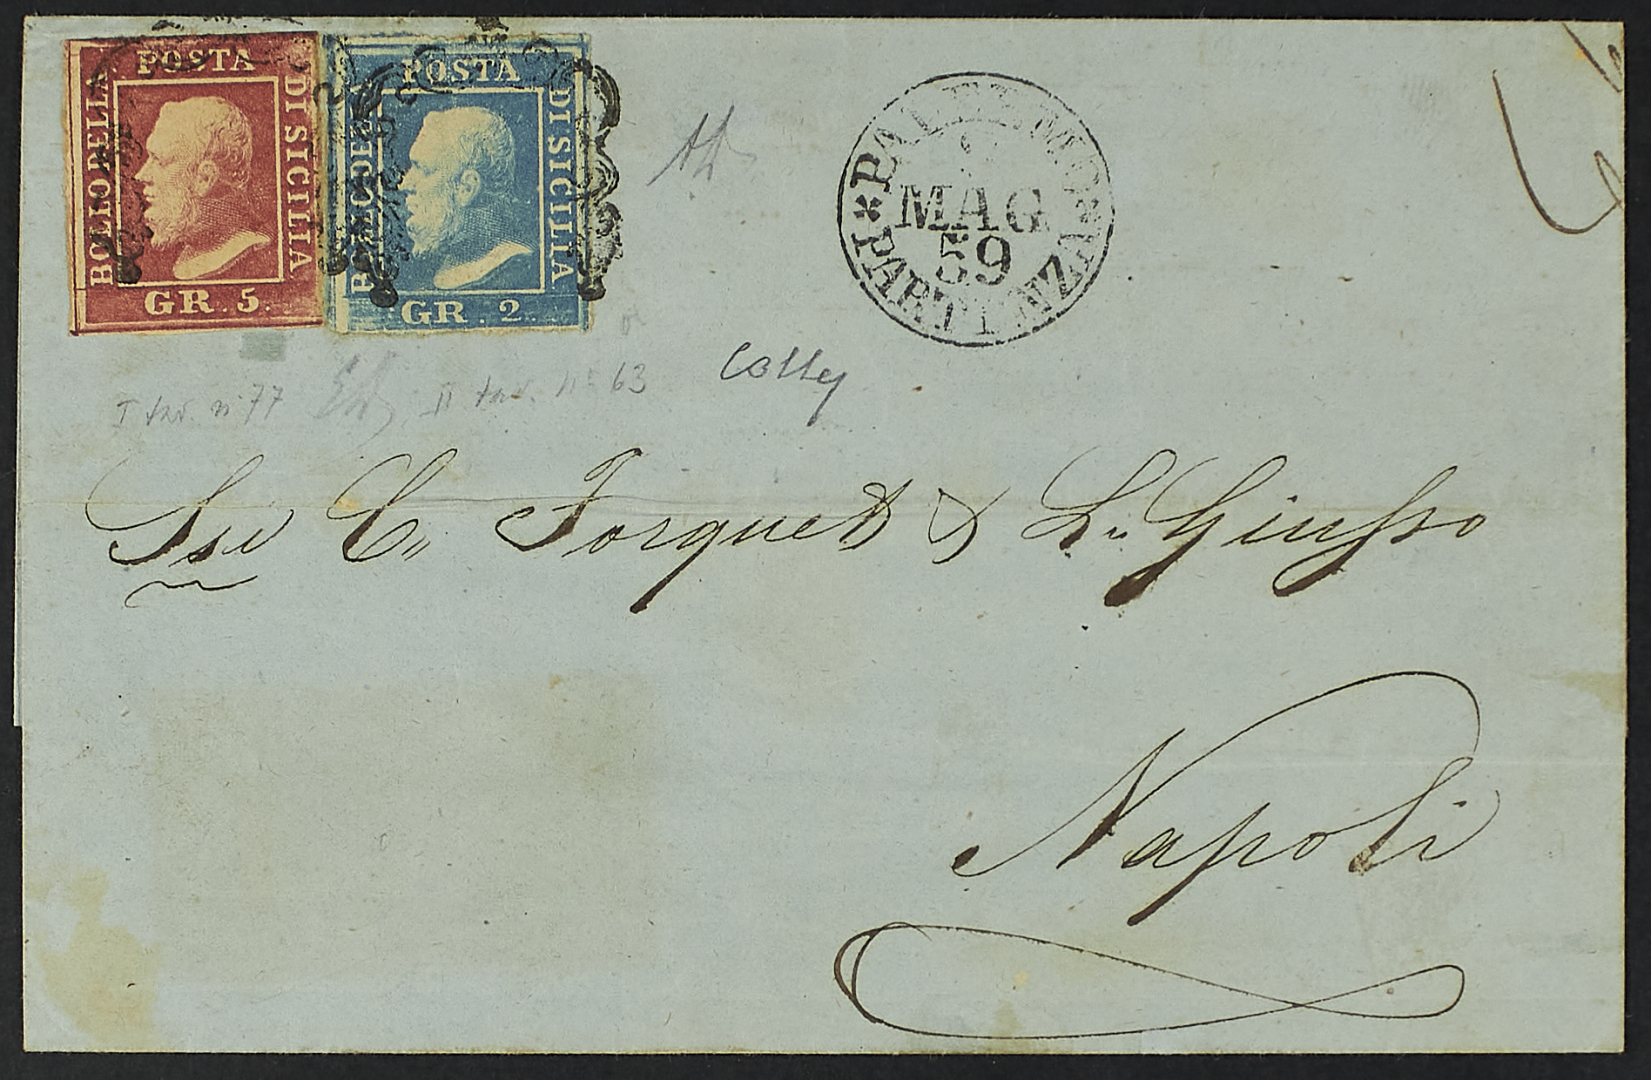 POSTA
BOLLO DELLA
DI SICILIA
GR. 5.
POSTA
BOLLO DELLA
DI SICILIA
GR. 2.
PALERMO
MAG
59
PARTENZA
I tav. n. 77
II tav. n. 63
Colley
C. Forquet & L. Giusso
Napoli